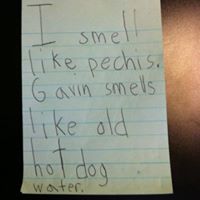 I smell
like pechis.
Gavin smells
like old
hot dog
water.